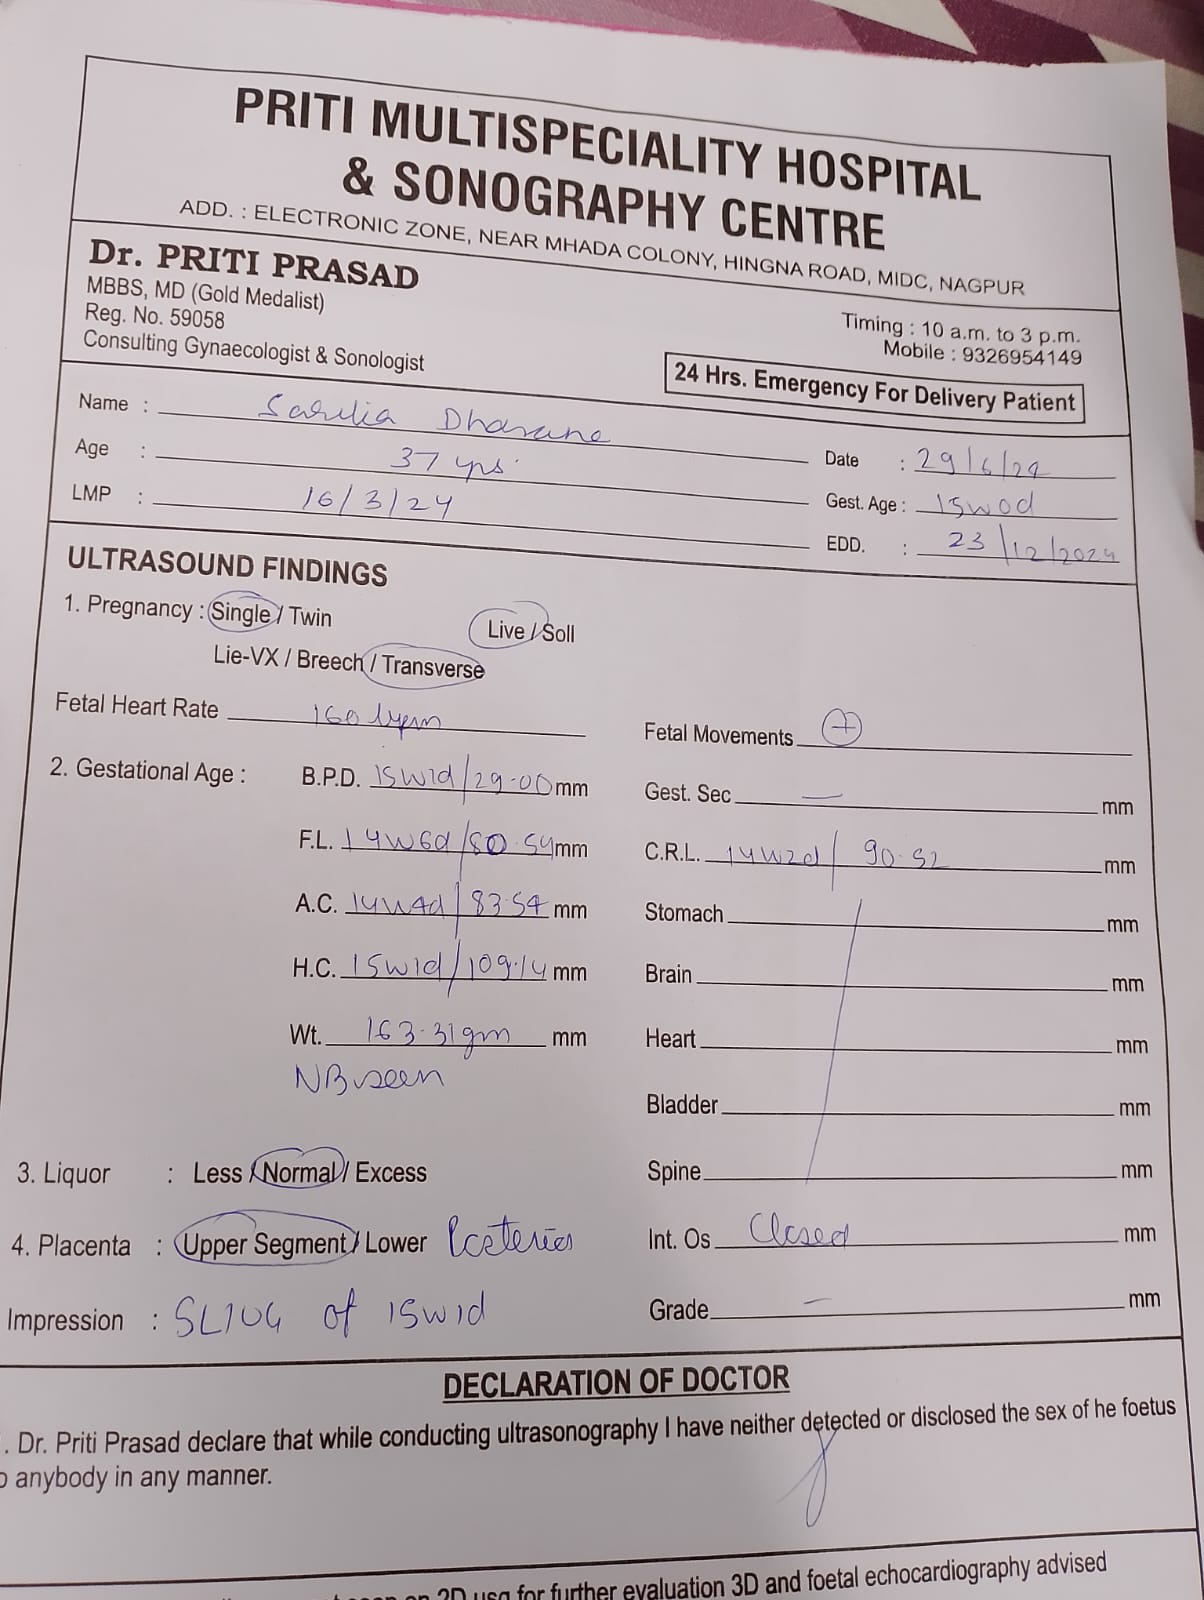 PRITI MULTISPECIALITY HOSPITAL
& SONOGRAPHY CENTRE
ADD. : ELECTRONIC ZONE, NEAR MHADA COLONY, HINGNA ROAD, MIDC, NAGPUR
Dr. PRITI PRASAD
MBBS, MD (Gold Medalist)
Reg. No. 59058
Consulting Gynaecologist & Sonologist
Timing : 10 a.m. to 3 p.m.
Mobile : 9326954149
24 Hrs. Emergency For Delivery Patient
Name : Dharane
Age : 37 yrs.
LMP : 16/3/24
Date : 29/6/24
Gest. Age : 15w0d
EDD. : 23/12/2024
ULTRASOUND FINDINGS
1. Pregnancy : Single / Twin Live / Soll
Lie-VX / Breech / Transverse
Fetal Heart Rate 160 bpm Fetal Movements +
2. Gestational Age : B.P.D. 15w1d/29.00 mm Gest. Sec — mm
F.L. 14w6d/ mm C.R.L. 14w2d/ 90.52 mm
A.C. 14w4d/83.54 mm Stomach mm
H.C. 15w1d/109.14 mm Brain mm
Wt. 163.31gm mm Heart mm
NB seen
Bladder mm
3. Liquor : Less / Normal / Excess Spine mm
4. Placenta : Upper Segment / Lower Int. Os Closed mm
Impression : SLIUG of 15w1d Grade — mm
DECLARATION OF DOCTOR
. Dr. Priti Prasad declare that while conducting ultrasonography I have neither detected or disclosed the sex of he foetus
anybody in any manner.
on 2D usg for further evaluation 3D and foetal echocardiography advised